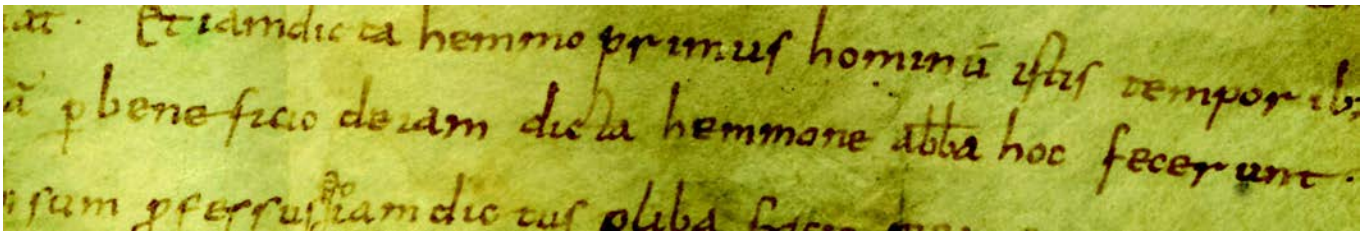 Et iamdicta hemmo primus hominū istis temporib;
p beneficio de iam dicta hemmone abba hoc fecerunt.
sum pfessus iamdictus oliba